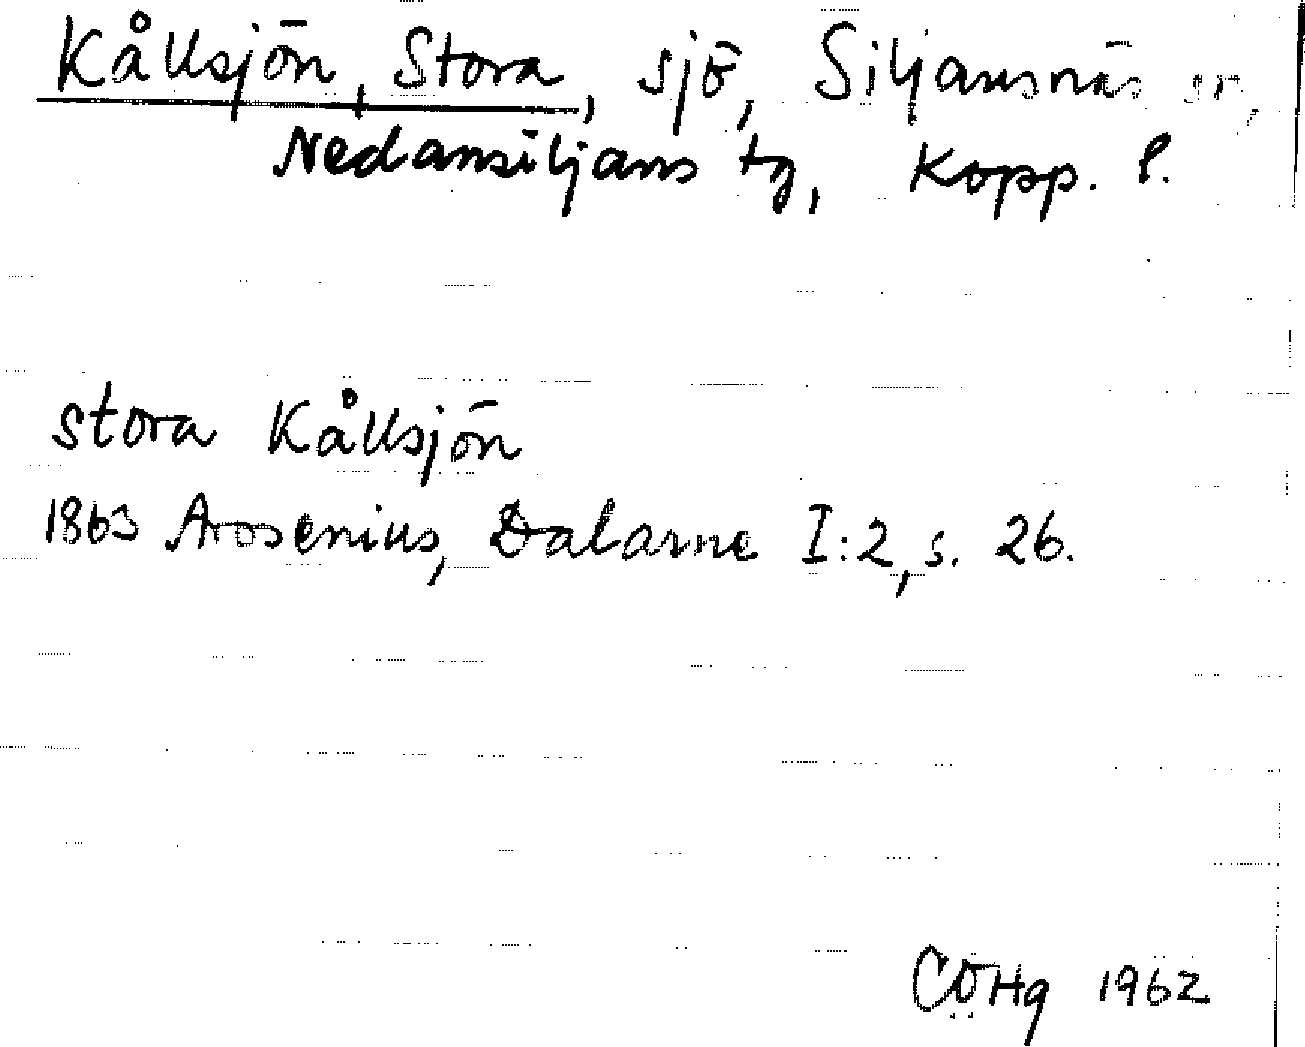 Kållsjön, Stora, sjö, Siljansnäs sn,
Nedansiljans tg, Kopp. l.
Stora Kållsjön
1863 Arosenius, Dalarne I:2, s. 26.
CÖHg 1962